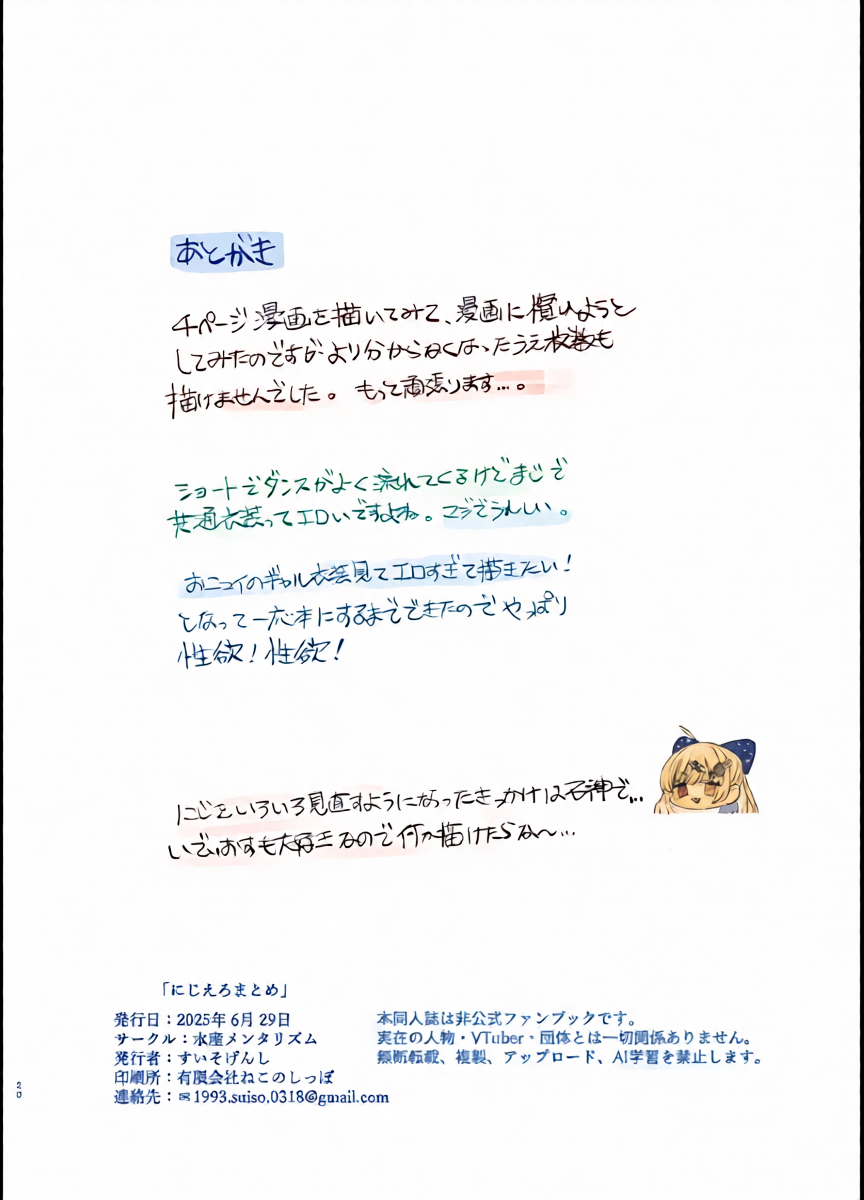 あとがき
4ページ漫画を描いてみて、漫画に慣いようと
してみたのですがより分からなくなったうえ枚数も
描けませんでした。 もって頑張ります…。
ショートでダンスがよく流れてくるけどまじで
共通衣装ってエロいですよね。マジでうれしい。
おニュイのギャル衣装見てエロすぎて描きたい!
となって一応本にするまでできたのでやっぱり
性欲!性欲!
にじをいろいろ見直すようになったきっかけは石神で…
いで、おすも大好きなので何か描けたらな〜…
「にじえろまとめ」
発行日:2025年6月29日
サークル:水産メンタリズム
発行者:すいそげんし
印刷所:有限会社ねこのしっぽ
連絡先:✉1993.suiso.0318@gmail.com
本同人誌は非公式ファンブックです。
実在の人物・VTuber・団体とは一切関係ありません。
無断転載、複製、アップロード、AI学習を禁止します。
20